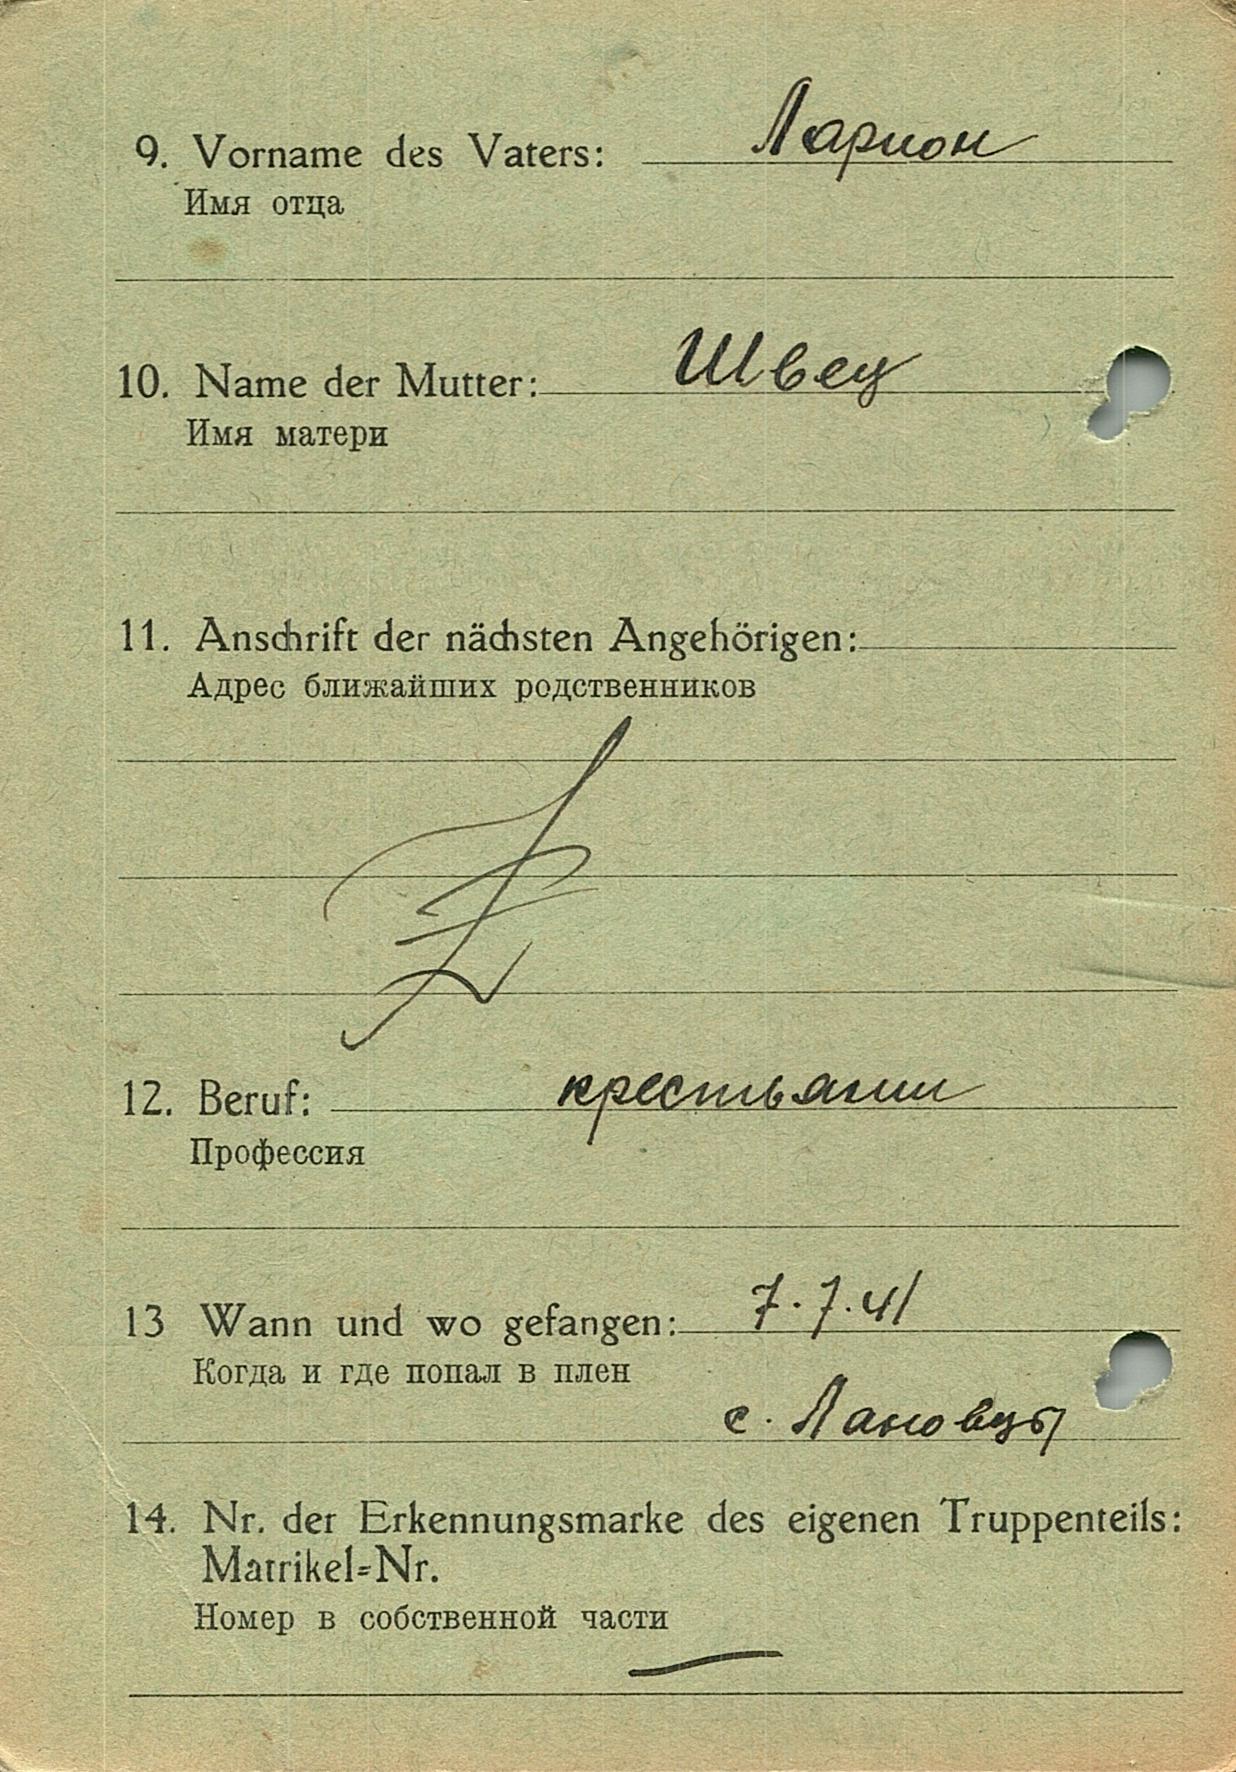 9. Vorname des Vaters: Ларион
Имя отца
10. Name der Mutter: Швец
Имя матери
11. Anschrift der nächsten Angehörigen:
Адрес ближайших родственников
12. Beruf: крестьянин
Профессия
13 Wann und wo gefangen: 7.7.41
Когда и где попал в плен
с. Лановцы
14. Nr. der Erkennungsmarke des eigenen Truppenteils:
Matrikel=Nr.
Номер в собственной части
—